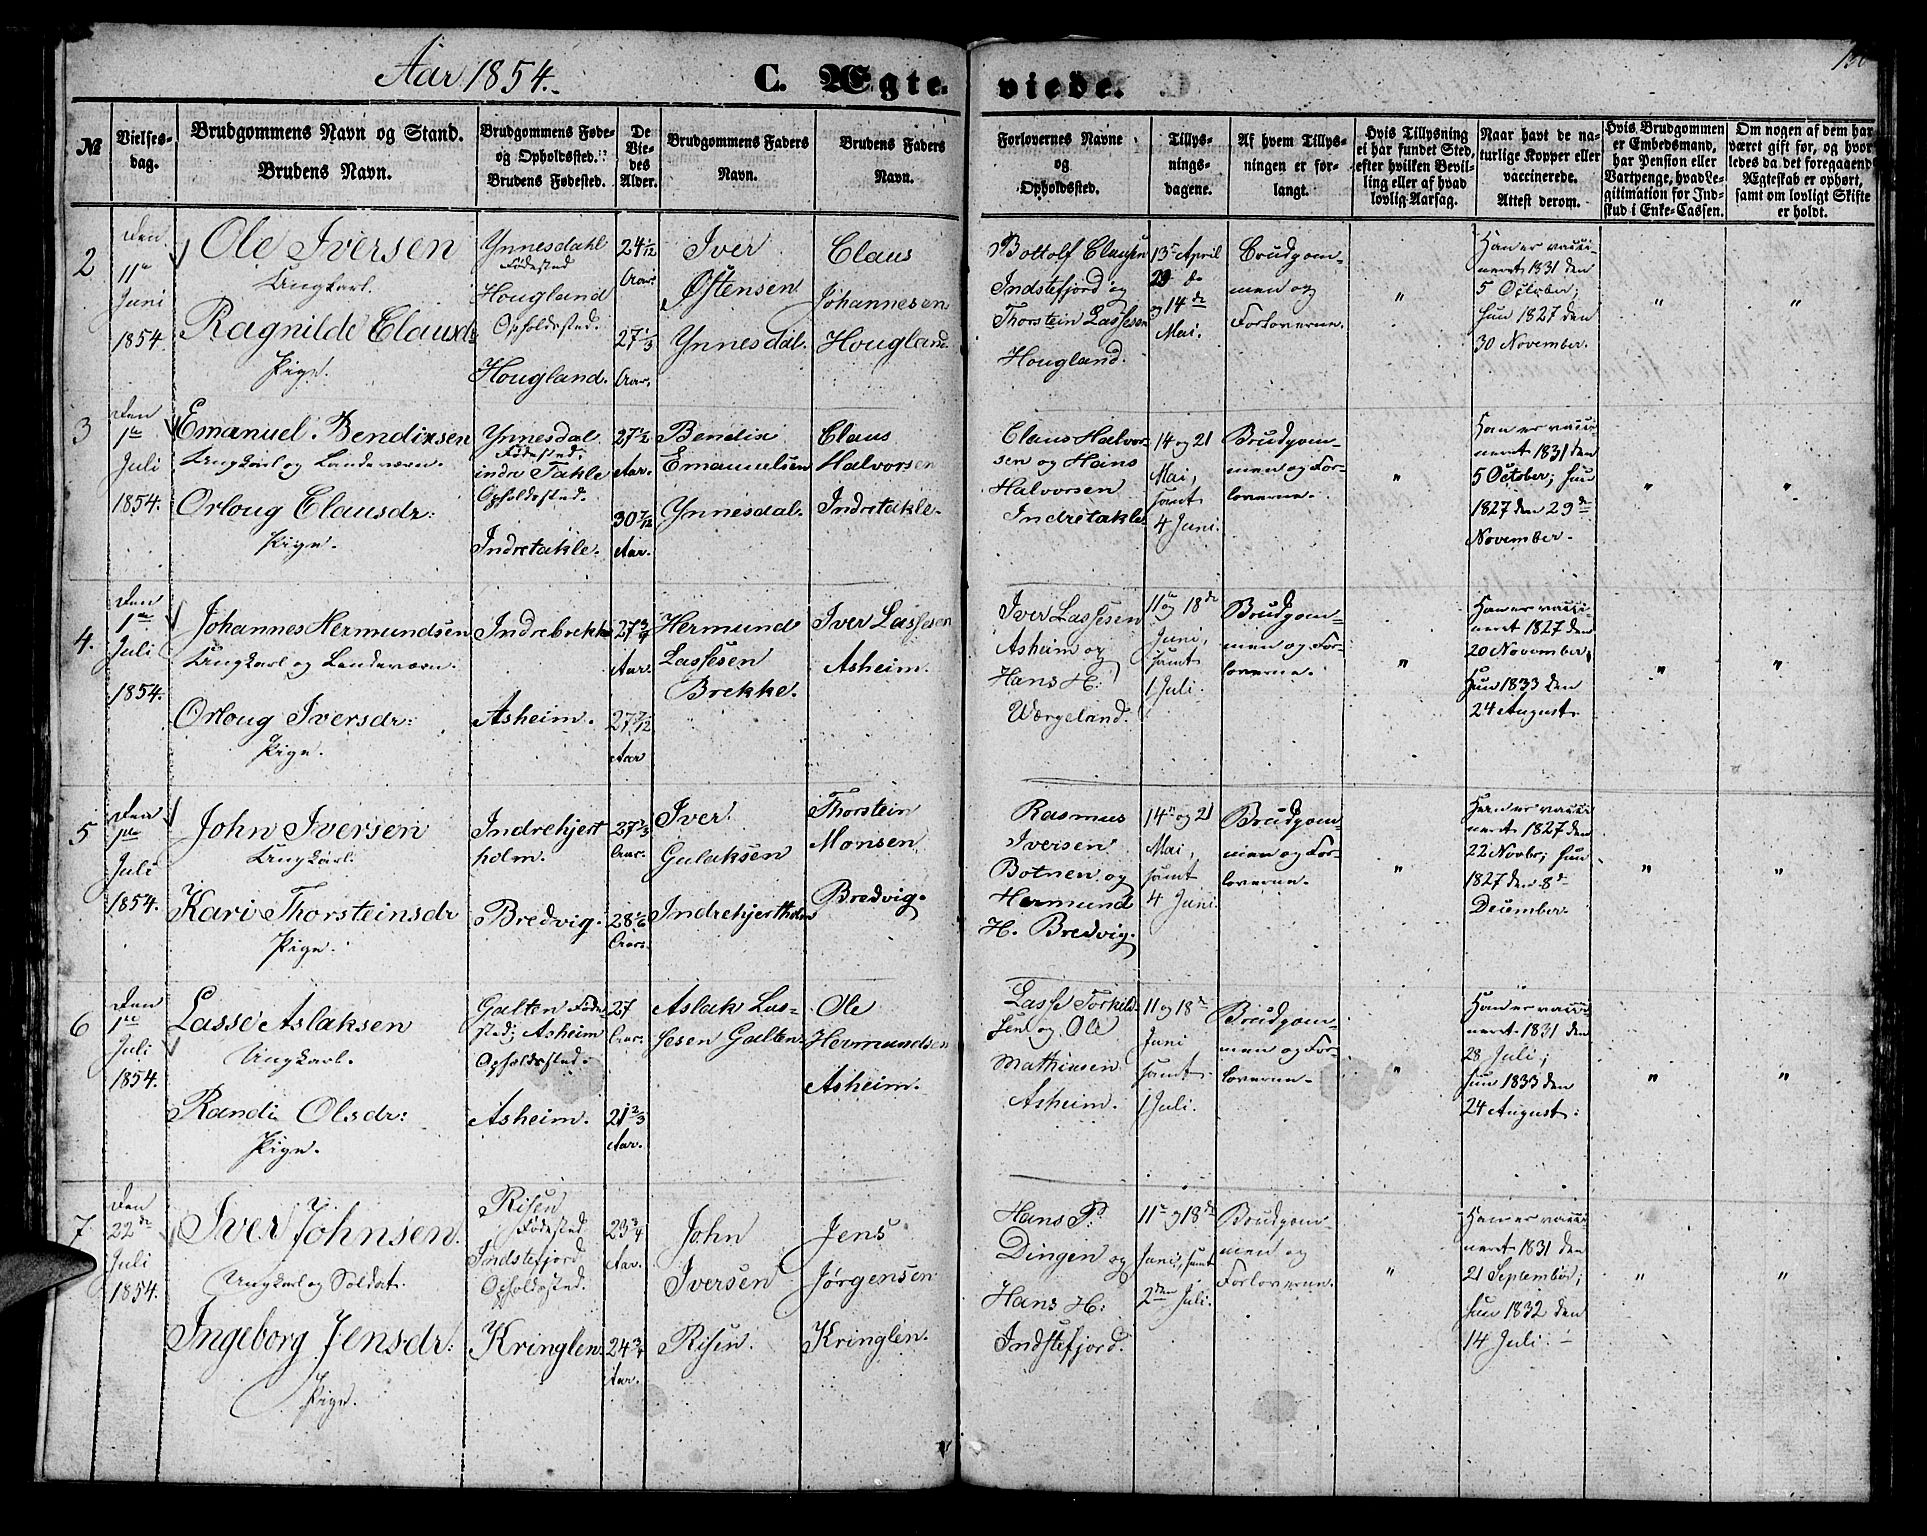 Aar 1854.
C. Ægte=
viede.
№
Vielses-
dag.
Brudgommens Navn og Stand.
Brudens Navn.
Brudgommens Føde-
og Opholdssted.
Brudens Fødested.
De
Vie-
des
Alder.
Brudgommens Faders
Navn.
Brudens Faders
Navn.
Forlovernes Navne
og
Opholdssted.
Tillys-
nings-
dagene.
Af hvem Tillys-
ningen er for-
langt.
Hvis Tillysning
ei har fundet Sted,
efter hvilken Bevil-
ling eller af hvad
lovlig Aarsag.
Naar havt de na-
turlige Kopper eller
vaccinerede.
Attest derom.
Hvis Brudgommen
er Embedsmand,
har Pension eller
Vartpenge, hvad Le-
gitimation for Ind-
skud i Enke-Cassen.
Om nogen af dem har
været gift før, og hvor-
ledes da det foregaaende
Ægteskab er ophørt,
samt om lovligt Skifte
er holdt.
2
den
11te
Juni
1854.
Ole Iversen
Ungkarl.
Ragnilde Clausdr
Pige.
Ynnesdahl
Födested
Hougland
Opholdssted.
Hougland.
24 1/12
Aar.
27 1/3
Aar.
Iver
Østensen
Ynnesdal.
Claus
Johannesen
Hougland
Bottolf Clausen
Indstefjord og
Thorstein Lassesen
Hougland.
13de April
23 do
og 14de
Mai.
Brudgom=
men og
Forloverne.
"
Han er vacci
neret 1831 den
5 October;
hun 1827 den
30 November.
"
"
3
den
1te
Juli
1854.
Emanuel Bendixsen
Ungkarl og Landeværn.
Orloug Clausdr:
Pige.
Ynnesdal
Födested;
indre Takle
Opholdssted.
Indretakle.
27 1/2
Aar.
30 7/12
Aar.
Bendix
Emanuelsen
Ynnesdal.
Claus
Halvorsen
Indretakle.
Claus Halvor=
sen og Hans
Halvorsen
Indretakle
14 og 21
Mai,
samt
4 Juni.
Brudgom=
men og For=
loverne.
"
Han er vacci
neret 1831 den
5 October; hun
1827 den 29de
November.
"
"
4.
den
1te
Juli
1854.
Johannes Hermundsen
Ungkarl og Landeværn.
Orloug Iversdr:
Pige.
Indrebrekke
Asheim.
27 3/4
Aar.
27 7/12
Aar
Hermund
Lassesen
Brekke.
Iver Lassesen
Asheim.
Iver Lassesen
Asheim og
Hans H:
Værgeland.
11te og 18de
Juni,
samt
1 Juli.
Brudgom=
men og For=
loverne.
"
Han er vacci
neret 1827 den
20 November,
hun 1833 den
24 August.
"
"
5
den
1te
Juli
1854.
John Iversen
Ungkarl.
Kari Thorsteinsdr
Pige.
Indrehjort
holm.
Bredvig.
27 1/3
Aar.
28 1/6
Aar.
Iver
Gulaksen
Indrehjortholm
Thorstein
Monsen
Bredvig.
Rasmus
Iversen
Botnen og
Hermund
H. Bredvig.
14de og 21
Mai,
samt
4 Juni.
Brudgom=
men og For=
loverne.
"
Han er vacci
neret 1827 den
22 Novbr; hun
1827 den 8de
December.
"
"
6
den
1te
Juli
1854.
Lasse Aslaksen
Ungkarl.
Randi Olsdr:
Pige.
Galten Föde
sted; Asheim
Opholdssted.
Asheim.
27
Aar.
21 2/3
Aar.
Aslak Las=
sesen Galten.
Ole
Hermundsen
Asheim.
Lasse Torkild
sen og Ole
Mathiesen
Asheim.
11 og 18de
Juni
samt
1 Juli.
Brudgom=
men og For=
loverne.
"
Han er vacci
neret 1831 den
28 Juli;
hun 1833 den
24 August.
"
"
7
den
22de
Juli
1854.
Iver Johnsen.
Ungkarl og Soldat.
Ingeborg Jensdr:
Pige.
Risen
Födested
Indstefjord
Opholdssted.
Kringlen
23 3/4
Aar.
24 3/4
Aar.
John
Iversen
Risen.
Jens
Jørgensen
Kringlen.
Hans P.
Dingen og
Hans H:
Indstefjord.
11te og 18de
Juni, samt
2den Juli.
Brudgom=
men og
Forloverne.
"
Han er vacci
neret 1831 den
21 September;
hun 1832 den
14 Juli.
"
"